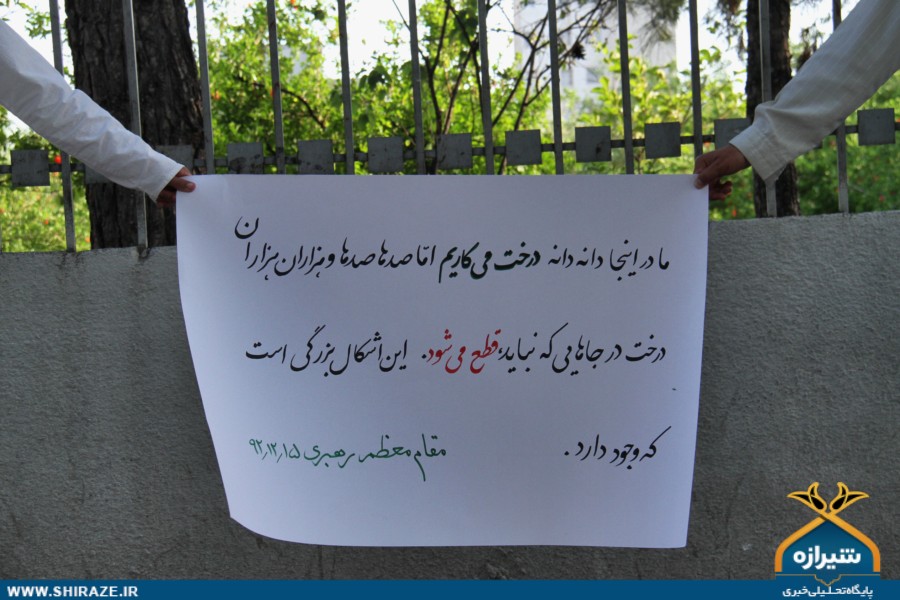 ما در اینجا دانه دانه درخت می کاریم امّا صدها صدها و هزاران هزاران
درخت در جاهایی که نباید؛ قطع می شود. این اشکال بزرگی است
که وجود دارد.
مقام معظم رهبری ۹۲٫۱۲٫۱۵
شیرازه
پایگاه تحلیلی خبری
WWW.SHIRAZE.IR